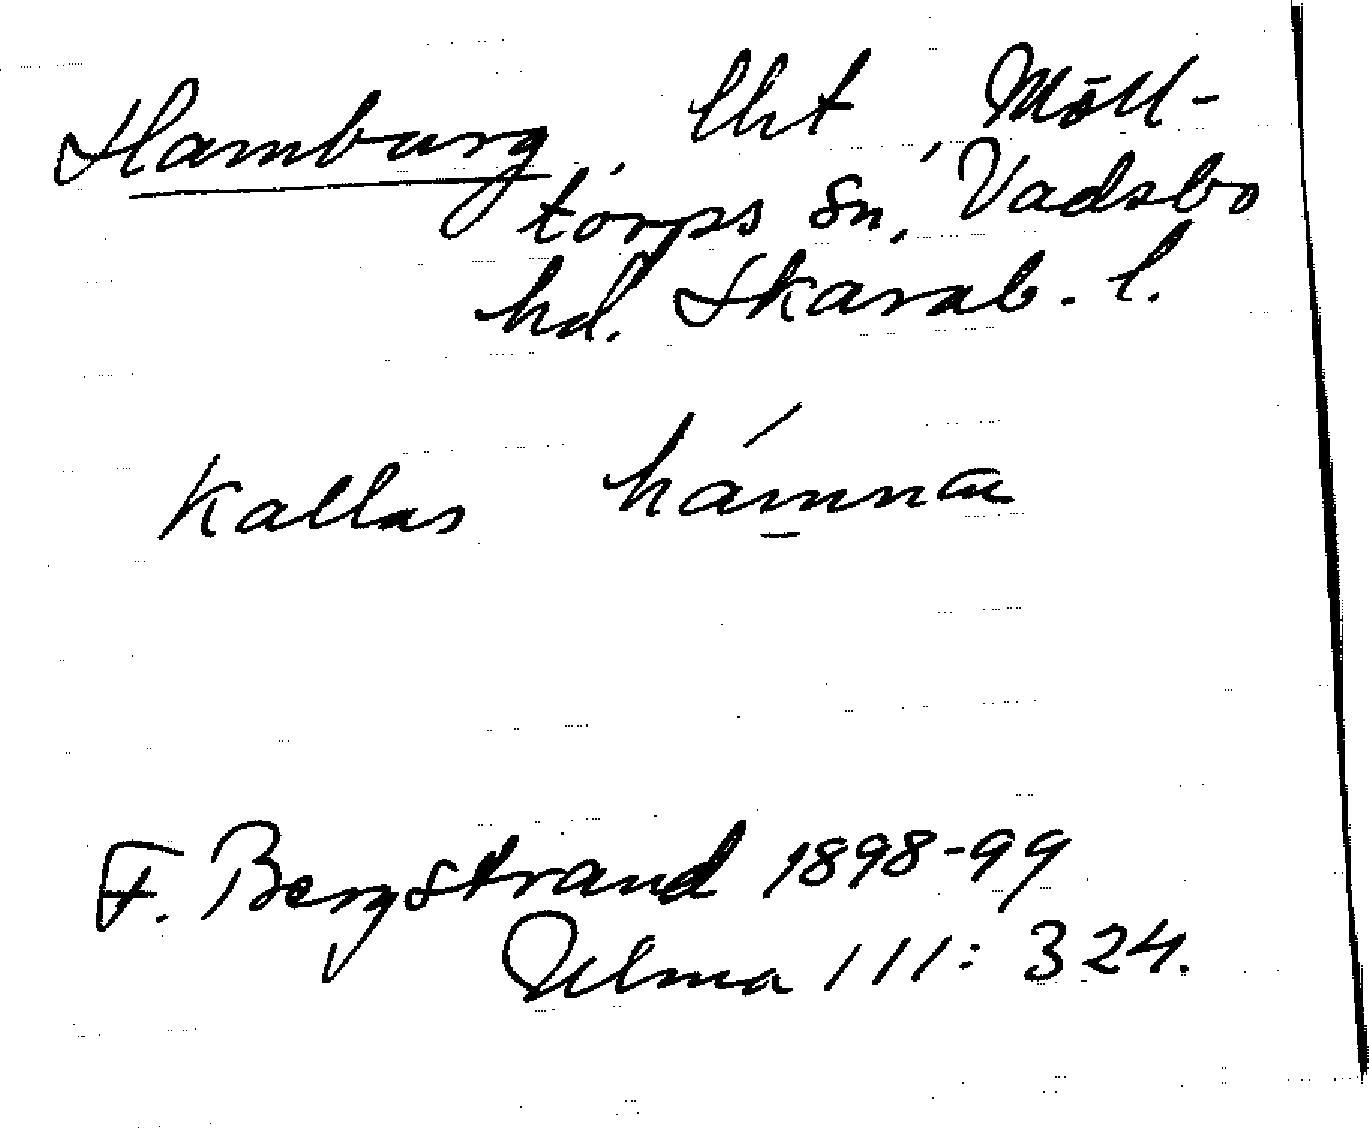 Hamburg, lht, Möll-
torps sn, Vadsbo
hd. Skarab. l.
Kallas hámnæ
F. Bergstrand 1898-99
Ulma 111: 324.